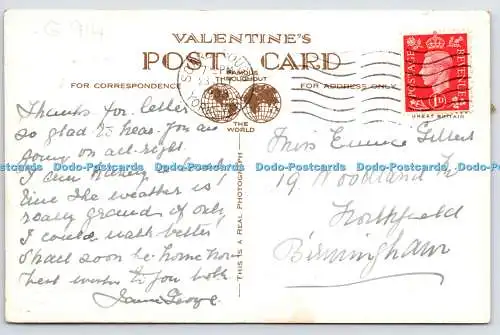 G 914
VALENTINE'S
POST CARD
FAMOUS THROUGHOUT
FOR CORRESPONDENCE
FOR ADDRESS ONLY
THE WORLD
POSTAGE
REVENUE
1D
GREAT BRITAIN
THIS IS A REAL PHOTOGRAPH
Thanks for letter
so glad to hear. You are
going on all-right
I am
The weather is
really grand if only
I could walk better
Shall soon be home now
best wishes to you both
George
Miss Eunice Gilbert
19 Woodland
Northfield
Birmingham
Dodo-Postcards Dodo-Postcards Dodo-Postcards Dodo-Postcards